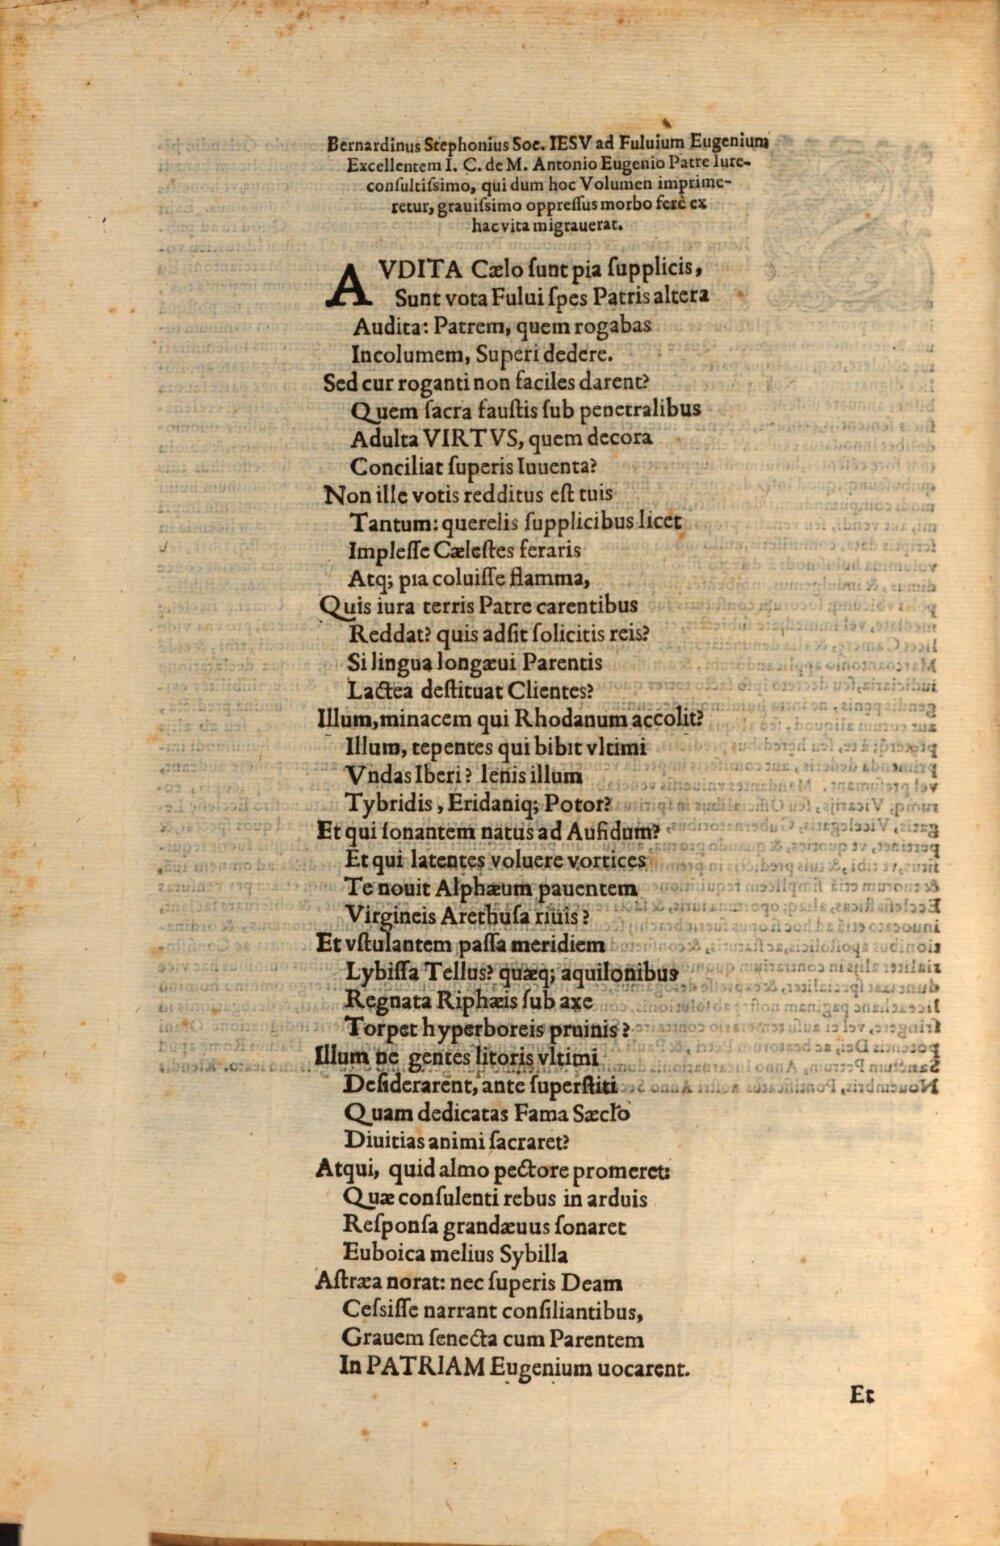 Bernardinus Stephonius Soc. IESV ad Fuluium Eugenium
Excellentem I. C. de M. Antonio Eugenio Patre Iure-
consultissimo, qui dum hoc Volumen imprime-
retur, grauissimo oppressus morbo ferè ex
hac vita migrauerat.
AVDITA Cælo sunt pia supplicis,
Sunt vota Fului spes Patris altera
Audita: Patrem, quem rogabas
Incolumem, Superi dedere.
Sed cur roganti non faciles darent?
Quem sacra faustis sub penetralibus
Adulta VIRTVS, quem decora
Conciliat superis Iuuenta?
Non ille votis redditus est tuis
Tantum: querelis supplicibus licet
Implesse Cælestes feraris
Atq; pia coluisse flamma,
Quis iura terris Patre carentibus
Reddat? quis adsit solicitis reis?
Si lingua longæui Parentis
Lactea destituat Clientes?
Illum, minacem qui Rhodanum accolit?
Illum, tepentes qui bibit vltimi
Vndas Iberi? lenis illum
Tybridis, Eridaniq; Potor?
Et qui sonantem natus ad Aufidum?
Et qui latentes voluere vortices
Te nouit Alphæum pauentem
Virgineis Arethusa riuis?
Et vstulantem passa meridiem
Lybissa Tellus? quæq; aquilonibus
Regnata Riphæis sub axe
Torpet hyperboreis pruinis?
Illum ne gentes litoris vltimi
Desiderarent, ante superstiti
Quam dedicatas Fama Sæclo
Diuitias animi sacraret?
Atqui, quid almo pectore promeret:
Quæ consulenti rebus in arduis
Responsa grandæuus sonaret
Euboica melius Sybilla
Astræa norat: nec superis Deam
Cessisse narrant consiliantibus,
Grauem senecta cum Parentem
In PATRIAM Eugenium uocarent.
Et